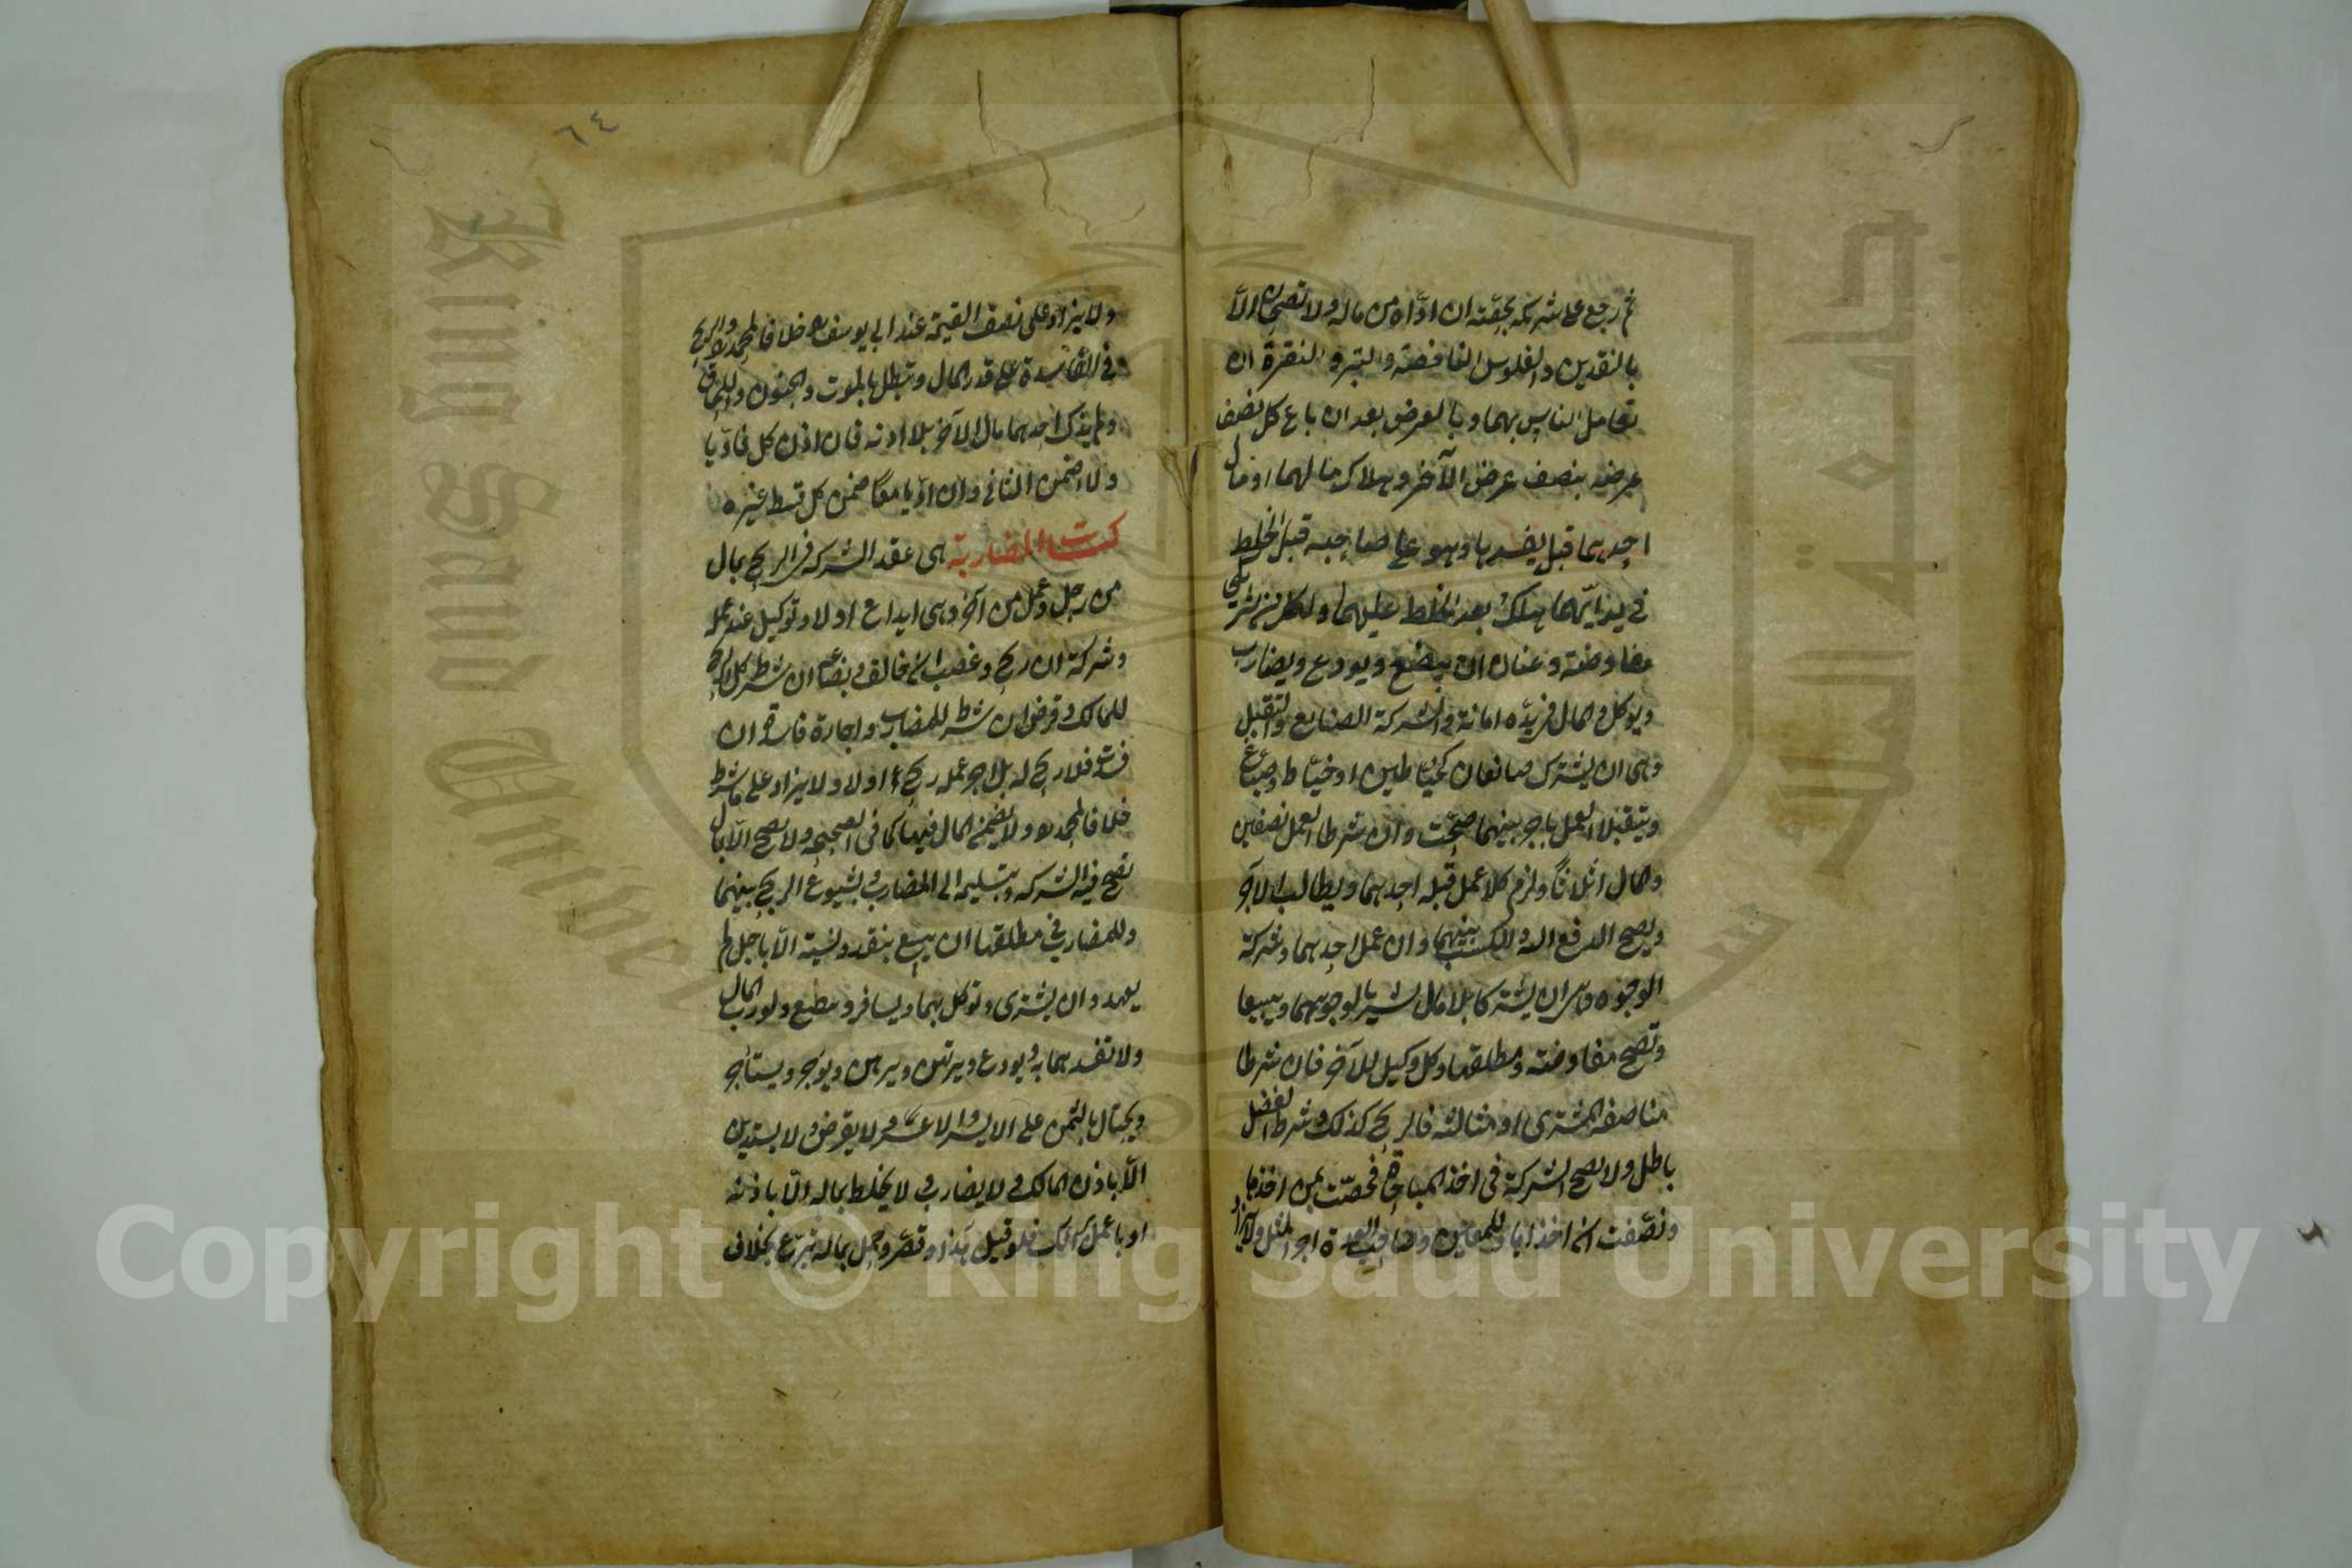 ثم رجع على شريكه بحصته ان اداه من ماله ولا تصحان الا
بالنقدين والفلوس النافقة والتبر والنقرة ان
تعامل الناس بهما وبالعرض بعد ان باع كل نصف
عرضه بنصف عرض الآخر وهلاك مالهما او مال
احدهما قبل يفسدها وهو على صاحبه قبل الخلط
في يد ايهما هلك وبعد الخلط عليهما ولكل من شريكي
مفاوضة وعنان ان يبضع ويودع ويضارب
ويوكل والمال في يده امانة والشركة الصنايع والتقبل
وهي ان يشترك صانعان كخياطين او خياط وصباغ
ويتقبلا العمل باجر بينهما صحت وان شرطا العمل نصفين
والمال اثلاثا ولزم كلا عمل قبله احدهما ويطالب الاجر
ويصح الدفع اليه والكسب بينهما وان عمل احدهما وشركة
الوجوه وهي ان يشتركا بلا مال ليشتريا بوجوههما ويبيعا
وتصح مفاوضة ومطلقها وكل وكيل للآخر فان شرطا
مناصفة المشترى او مثالثته فالربح كذلك وشرط الفضل
باطل ولا تصح الشركة في اخذ المباحات فخصت بمن اخذها
ونصفت ان اخذاها وللمعين وصاحب العدة اجر المثل ولا يزاد
٦٤
ولا يزاد على نصف القيمة عند ابي يوسف رح خلافا لمحمد رح والربح
في الفاسدة على قدر المال وتبطل بالموت والجنون واللحاق
ولم يزك احدهما مال الآخر بلا اذنه فان اذن كل فاديا
ولاء ضمن الثاني وان اديا معا ضمن كل قسط غيره
كتاب المضاربة هي عقد الشركة في الربح بمال
من رجل وعمل من آخر وهي ايداع اولا وتوكيل عند عمله
وشركة ان ربح وغصب ان خالف وبضاعة ان شرط كل الربح
للمالك وقرض ان شرط للمضارب واجارة فاسدة ان
فسدت فلا ربح له بل اجر عمله ربح اولا ولا يزاد على ما شرط
خلافا لمحمد رح ولا يضمن المال فيها كما في الصحيحة ولا تصح الا بمال
تصح فيه الشركة وبتسليمه الى المضارب وبشيوع الربح بينهما
وللمضارب في مطلقها ان يبيع بنقد ونسية الا باجل لم
يعهد وان يشتري وتوكل بهما ويسافر ويبضع ولو رب المال
ولا تفسد هما به ويودع ويرتهن ويرهن ويوجر ويستأجر
ويحتال بالثمن على الايسر والاعسر ولا يقرض ولا يستدين
الا باذن المالك ولا يضارب ولا يخلط بماله الا باذنه
او باعمل برأيك فلو قيل هذا وقصر وحمل بماله تبرع بخلاف
Copyright © King Saud University